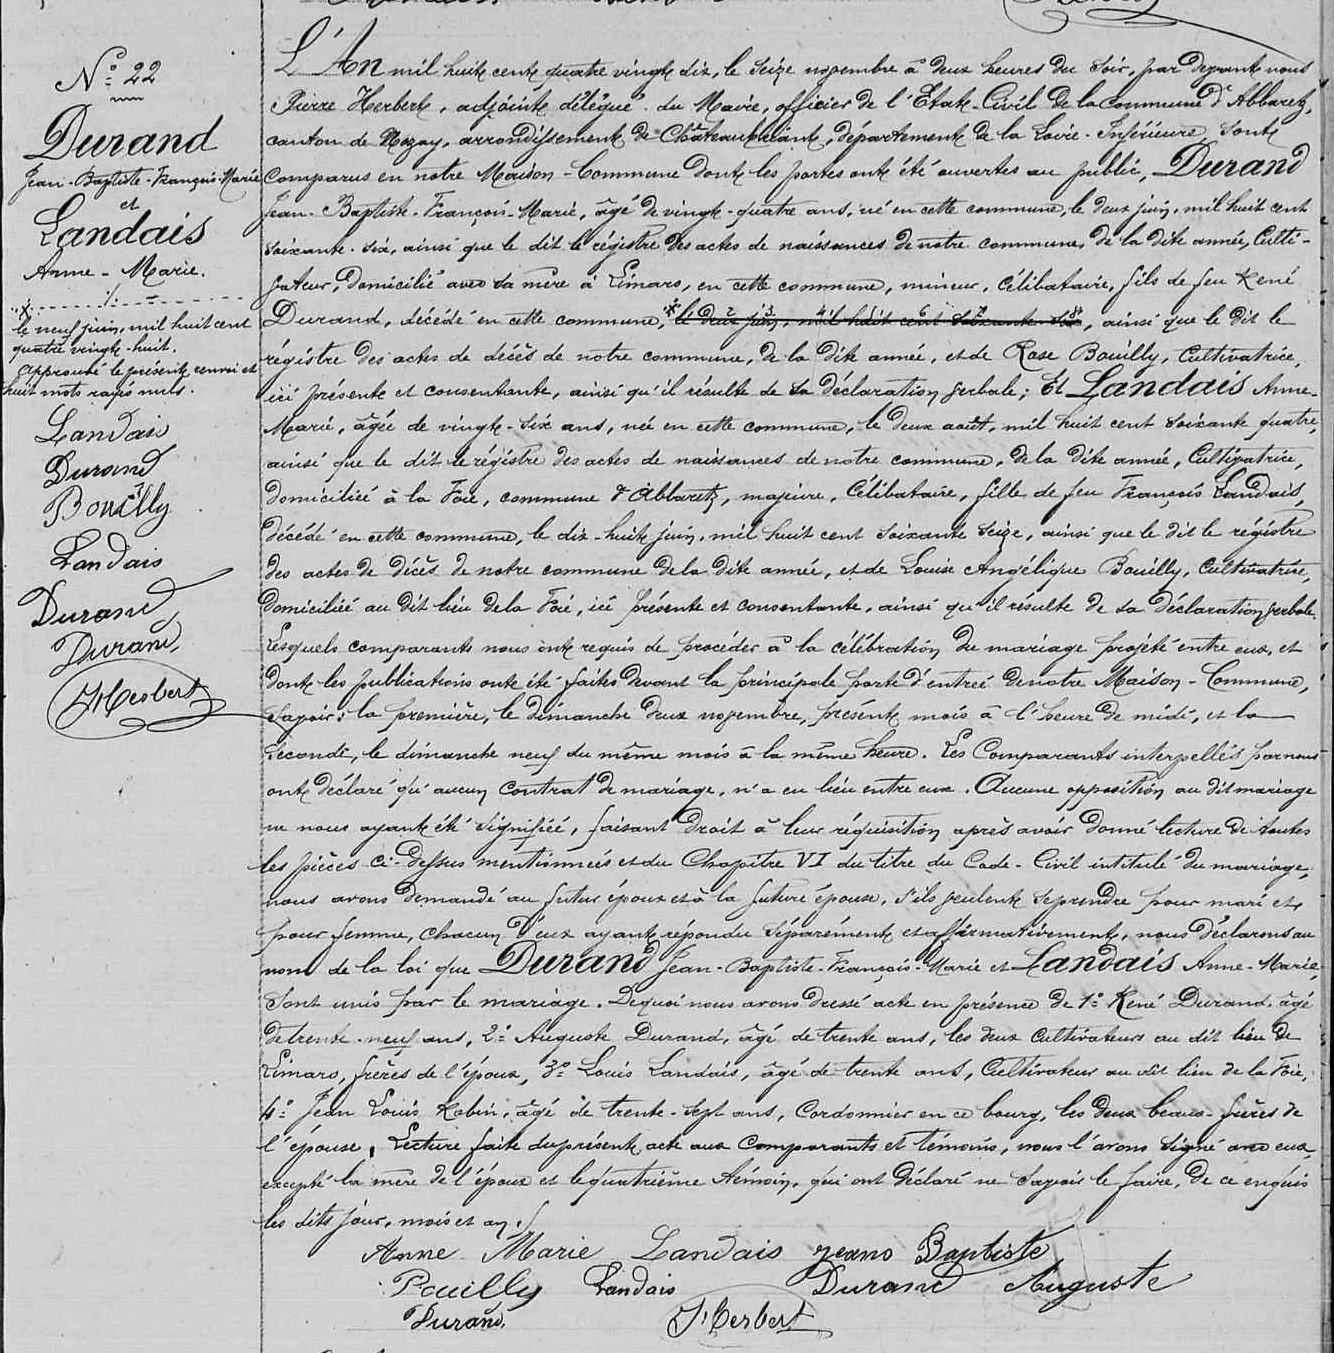 N° 22
Durand
Jean-Baptiste-François-Marie
et
Landais
Anne-Marie.
le neuf juin, mil huit cent
quatre vingt-huit.
approuvé le présent renvoi et
huit mots rayés nuls.
Landais
Durand
Bouilly
Landais
Durand
Durand
Herbert
L'An mil huit cent quatre vingt dix, le seize novembre à deux heures du soir, par devant nous
Pierre Herbert, adjoint délégué du Maire, officier de l'Etat-Civil de la commune d'Abbaretz,
canton de Nozay, arrondissement de Châteaubriant, département de la Loire-Inférieure, sont
comparus en notre Maison-Commune dont les portes ont été ouvertes au public, Durand
Jean-Baptiste-François-Marie, âgé de vingt-quatre ans, né en cette commune, le deux juin, mil huit cent
soixante-six, ainsi que le dit le régistre des actes de naissances de notre commune, de la dite année, Culti-
vateur, domicilié avec sa mère à Limaro, en cette commune, mineur, Célibataire, fils de feu René
Durand, décédé en cette commune, * le deux juin, mil huit cent soixante six, ainsi que le dit le
régistre des actes de décès de notre commune, de la dite année, et de Rose Bouilly, Cultivatrice,
ici présente et consentante, ainsi qu'il résulte de sa déclaration verbale; Et Landais Anne-
Marie, âgée de vingt-six ans, née en cette commune, le deux août, mil huit cent soixante quatre,
ainsi que le dit le régistre des actes de naissances de notre commune, de la dite année, Cultivatrice,
domiciliée à la Foie, commune d'Abbaretz, majeure, Célibataire, fille de feu François Landais,
décédé en cette commune, le dix-huit juin, mil huit cent soixante seize, ainsi que le dit le régistre
des actes de décès de notre commune de la dite année, et de Louise Angélique Bouilly, Cultivatrice,
domiciliée au dit lieu de la Foie, ici présente et consentante, ainsi qu'il résulte de sa déclaration verbale.
Lesquels comparants nous ont requis de procéder à la célébration du mariage projeté entre eux, et
dont les publications ont été faites devant la principale porte d'entrée de notre Maison-Commune,
Savoir: la première, le dimanche deux novembre, présent mois à l'heure de midi, et la
Seconde, le dimanche neuf du même mois à la même heure. Les Comparants interpellés par nous
ont déclaré qu'aucun Contrat de mariage, n'a eu lieu entre eux. Aucune opposition au dit mariage
ne nous ayant été signifiée, faisant droit à leur réquisition après avoir donné lecture de toutes
les pièces ci-dessus mentionnées et du Chapitre VI du titre du Code-Civil intitulé du mariage,
nous avons demandé au futur époux et à la future épouse, s'ils veulent se prendre pour mari et
pour femme, chacun d'eux ayant répondu séparément et affirmativement, nous déclarons au
nom de la loi que Durand Jean-Baptiste-François-Marie et Landais Anne-Marie,
sont unis par le mariage. De quoi nous avons dressé acte en présence de 1° René Durand, âgé
de trente-neuf ans, 2° Auguste Durand, âgé de trente ans, les deux cultivateurs au dit lieu de
Limaro, frères de l'époux, 3° Louis Landais, âgé de trente ans, Cultivateur au dit lieu de la Foie,
4° Jean Louis Robin, âgé de trente-sept ans, Cordonnier en ce bourg, les deux beaux-frères de
l'épouse. Lecture faite du présent acte aux Comparants et témoins, nous l'avons signé avec eux,
excepté la mère de l'époux et le quatrième témoin, qui ont déclaré ne savoir le faire, de ce enquis
les dits jour, mois et an.
Anne Marie Landais Baptiste
Bouilly Landais Durand Auguste
Durand Herbert